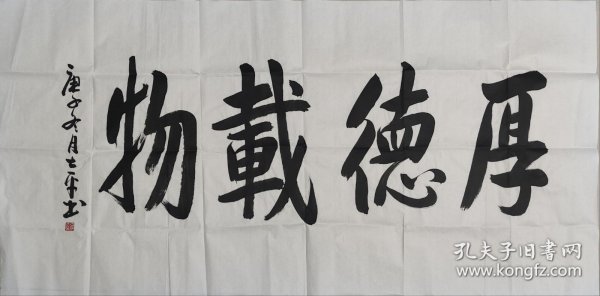 厚德載物
庚子冬月士平书
孔夫子旧書网
www.kongfz.com